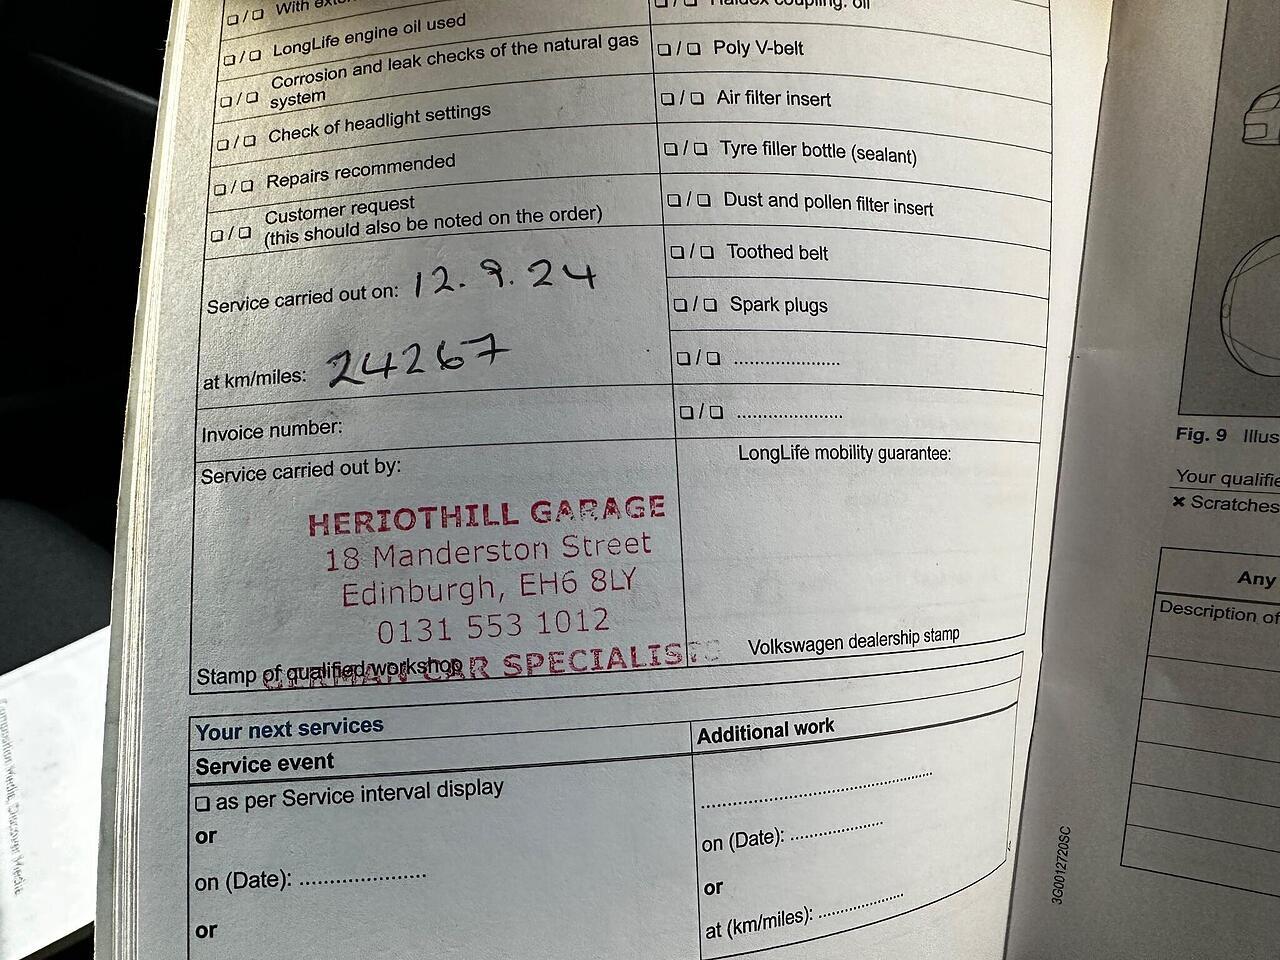 ❏ / ❏ With
❏ / ❏ LongLife engine oil used
❏ / ❏ Corrosion and leak checks of the natural gas
system
❏ / ❏ Check of headlight settings
❏ / ❏ Repairs recommended
❏ / ❏ Customer request
(this should also be noted on the order)
Service carried out on: 12.9.24
at km/miles: 24267
Invoice number:
Service carried out by:
HERIOTHILL GARAGE
18 Manderston Street
Edinburgh, EH6 8LY
0131 553 1012
GERMAN CAR SPECIALISTS
Stamp of qualified workshop
❏ / ❏ Haldex coupling: oil
❏ / ❏ Poly V-belt
❏ / ❏ Air filter insert
❏ / ❏ Tyre filler bottle (sealant)
❏ / ❏ Dust and pollen filter insert
❏ / ❏ Toothed belt
❏ / ❏ Spark plugs
❏ / ❏ .....................
❏ / ❏ .....................
LongLife mobility guarantee:
Volkswagen dealership stamp
Your next services
Service event
❏ as per Service interval display
or
on (Date): .....................
or
Additional work
.............................................
on (Date): ..................
or
at (km/miles): ................
3G0012720SC
Fig. 9 Illus
Your qualifie
× Scratches
Any
Description of